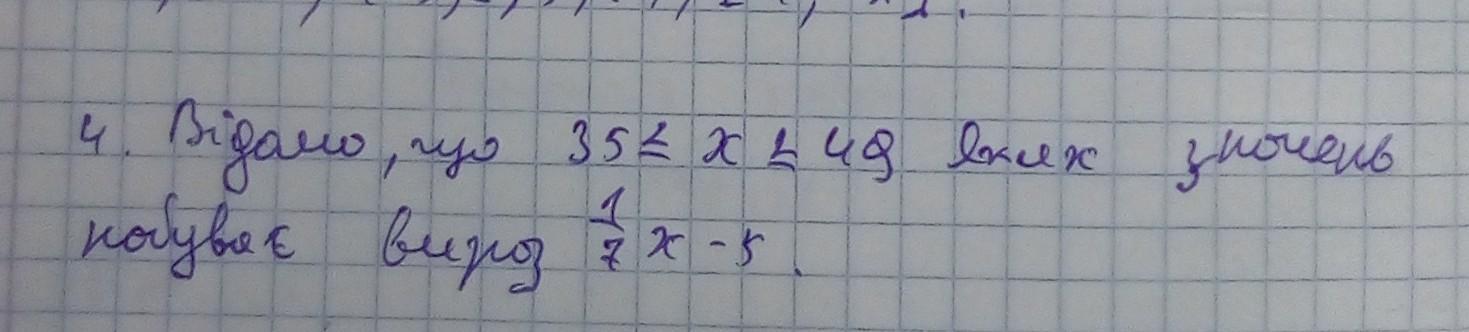 4. Відомо, що 35 ≤ x ≤ 49 Яких значень
набуває вираз 1/7 x - 5.